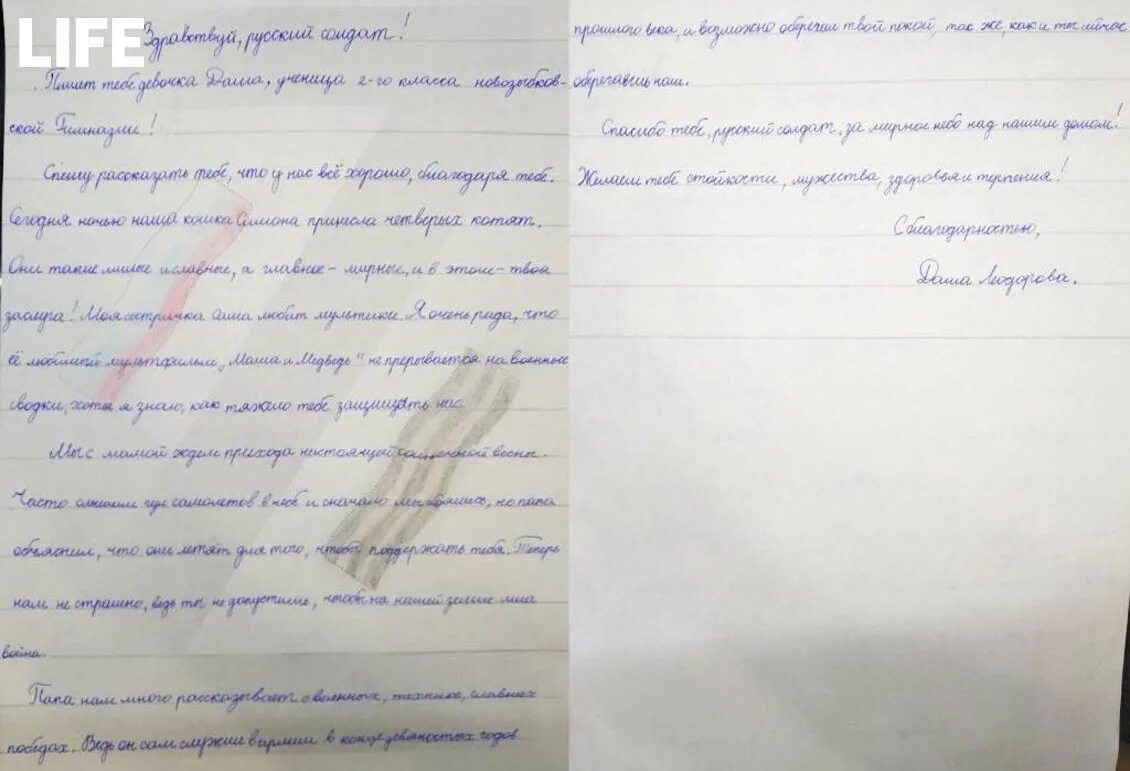 LIFE
Здравствуй, русский солдат!
Пишет тебе девочка Даша, ученица 2-го класса новозыбков-
ской Гимназии!
Спешу рассказать тебе, что у нас всё хорошо, благодаря тебе.
Сегодня ночью наша кошка Симона принесла четверых котят.
Они такие милые и славные, а главное - мирные, и в этом - твоя
заслуга! Моя сестричка Саша любит мультики. Я очень рада, что
её любимый мультфильм „Маша и Медведь" не прерывается на военные
сводки, хотя я знаю, как тяжело тебе защищать нас.
Мы с мамой ждем прихода настоящей, солнечной весны.
Часто слышим гул самолетов в небе и сначало мы боялись, но папа
объяснил, что они летят для того, чтобы поддержать тебя. Теперь
нам не страшно, ведь ты не допустишь, чтобы на нашей земле шла
война.
Папа нам много рассказывает о военных, технике, славных
победах. Ведь он сам служил в армии в конце девяностых годов
прошлого века, и возможно оберегал твой покой, так же, как и ты сейчас
оберегаешь наш.
Спасибо тебе, русский солдат, за мирное небо над нашим домом!
Желаем тебе стойкости, мужества, здоровья и терпения!
С благодарностью,
Даша